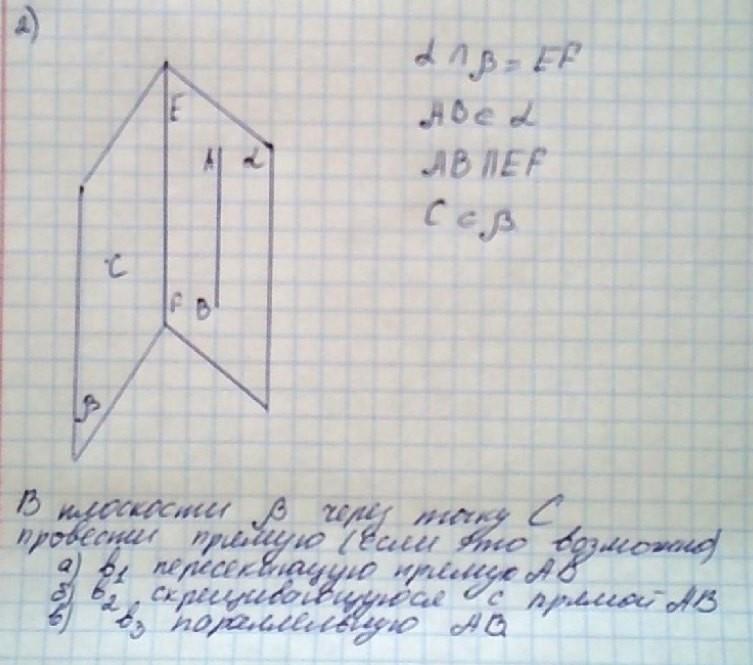 2)
α ∩ β = EF
E
AB ⊂ α
A α
AB || EF
C ⊂ β
C
F B
β
В плоскости β через точку C
провести прямую (если это возможно)
а) в₁ пересекающую прямую AB
б) в₂ скрещивающуюся с прямой AB
в) в₃ параллельную AB